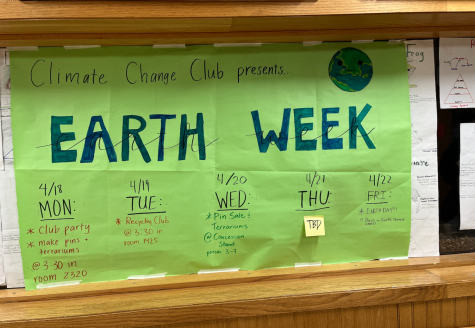 Climate Change Club presents...
EARTH WEEK
4/18
MON:
* Club party
* make pins +
terrariums
@ 3:30 in
room 2320
4/19
TUE:
* Recycling Club
@ 3:30 in
room M25
4/20
WED:
* Pin Sale +
Terrariums
@ Concession
Stand
4/21
THU:
TBD
4/22
FRI: